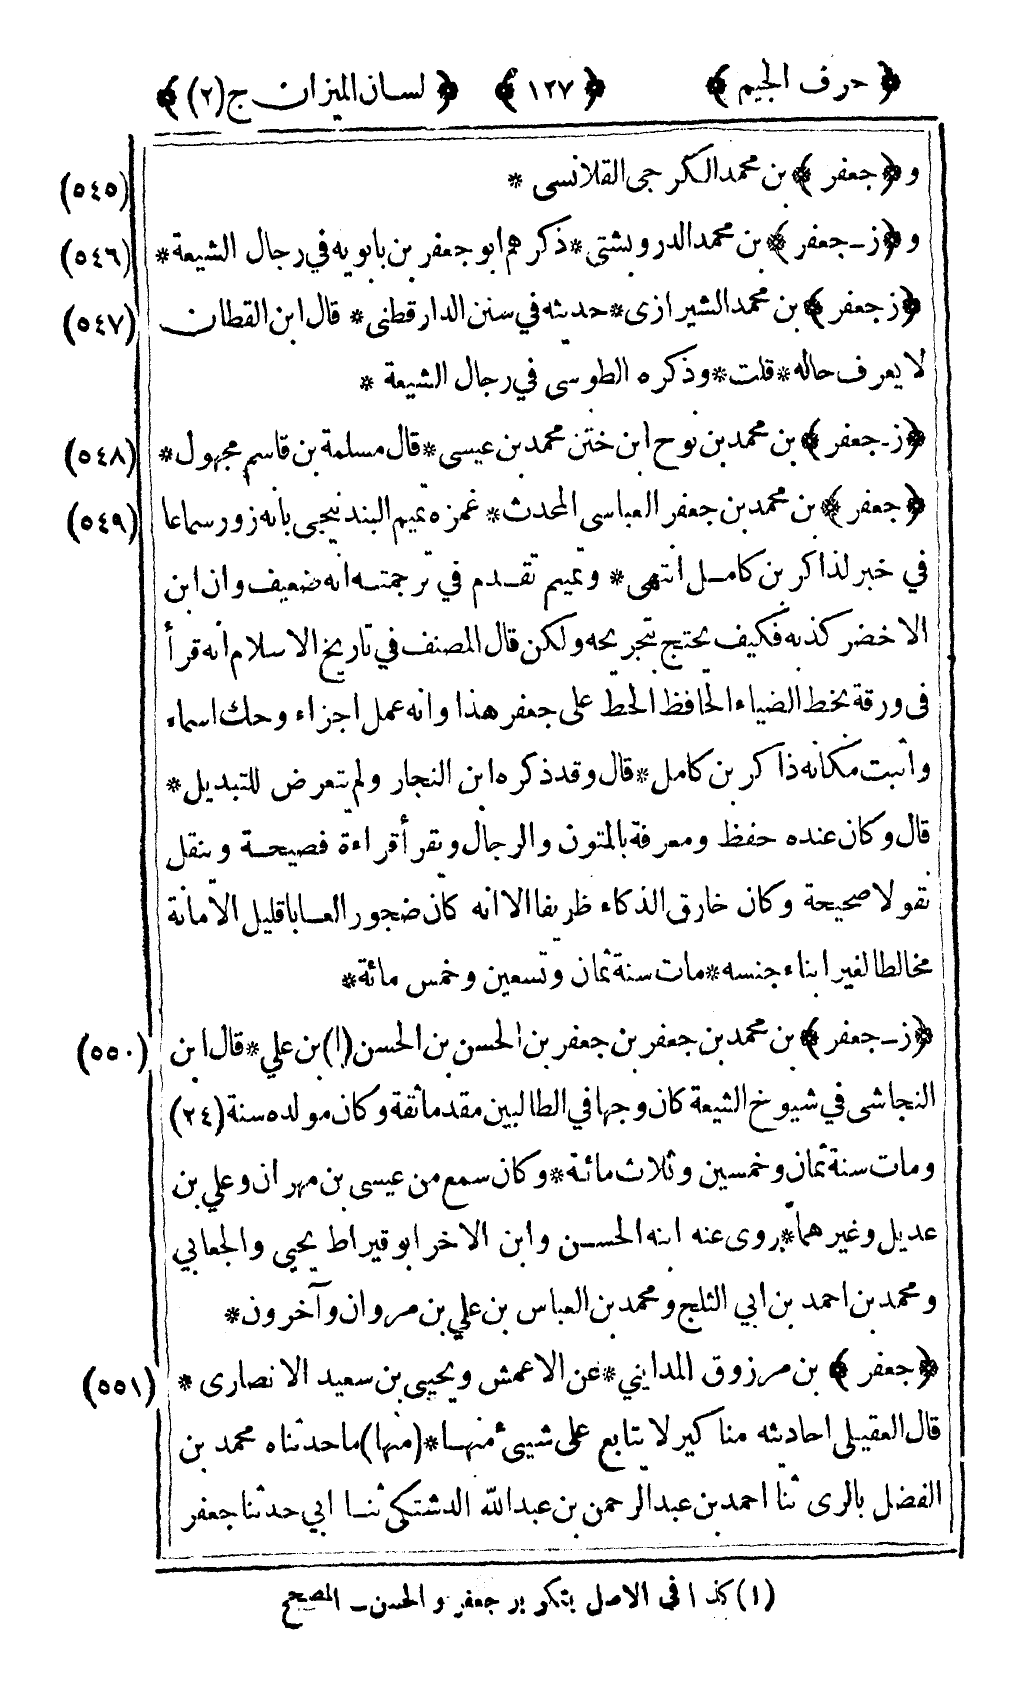 ﴿ حرف الجيم ﴾ ﴿ ١٢٧ ﴾ ﴿ لسان الميزان ج (٢) ﴾
و﴿ جعفر ﴾ بن محمد الكرجى القلانسى * (٥٤٥)
و﴿ ز ـ جعفر ﴾ بن محمد الدرويشتى * ذكرهم ابو جعفر بن بابويه في رجال الشيعة * (٥٤٦)
﴿ ز جعفر ﴾ بن محمد الشيرازى * حديثه في سنن الدارقطنى * قال ابن القطان (٥٤٧)
لا يعرف حاله * قلت * وذكره الطوسى في رجال الشيعة *
﴿ ز ـ جعفر ﴾ بن محمد بن نوح ابن ختن محمد بن عيسى * قال مسلمة بن قاسم مجهول * (٥٤٨)
﴿ جعفر ﴾ بن محمد بن جعفر العباسى المحدث * غمزه تميم البندنيجى بانه زور سماعا (٥٤٩)
في خبر لذاكر بن كامل انتهى * وتميم تقدم في ترجمته انه ضعيف وان ابن
الاخضر كذبه فكيف يحتج بتجريحه ولكن قال المصنف في تاريخ الاسلام انه قرأ
فى ورقة بخط الضياء الحافظ الحط على جعفر هذا وانه عمل اجزاء وحك اسماء
واثبت مكانه ذاكر بن كامل * قال وقد ذكره ابن النجار ولم يتعرض للتبديل *
قال وكان عنده حفظ ومعرفة بالمتون والرجال ويقرأ قراءة فصيحة وينقل
نقولا صحيحة وكان خارق الذكاء ظريفا الا انه كان ضجورا لعابا قليل الامانة
مخالطا لغير ابناء جنسه * مات سنة ثمان وتسعين وخمس مائة *
﴿ ز ـ جعفر ﴾ بن محمد بن جعفر بن جعفر بن الحسن بن الحسن (١) بن علي * قال ابن (٥٥٠)
النجاشى في شيوخ الشيعة كان وجها في الطالبيين مقدما ثقة وكان مولده سنة (٢٤)
ومات سنة ثمان وخمسين وثلاث مائة * وكان سمع من عيسى بن مهران وعلي بن
عديل وغيرهما * روى عنه ابنه الحسن وابن الاخر ابو قيراط يحيى والجعابي
ومحمد بن احمد بن ابي الثلج ومحمد بن العباس بن علي بن مروان وآخرون *
﴿ جعفر ﴾ بن مرزوق المدايني * عن الاعمش ويحيى بن سعيد الانصارى * (٥٥١)
قال العقيلى احاديثه مناكير لا يتابع على شيئ منها * (منها) ما حدثناه محمد بن
الفضل بالرى ثنا احمد بن عبد الرحمن بن عبد الله الدشتكى ثنا ابي حدثنا جعفر
(١) كذا في الاصل بتكرير جعفر و الحسن ـ المصحح